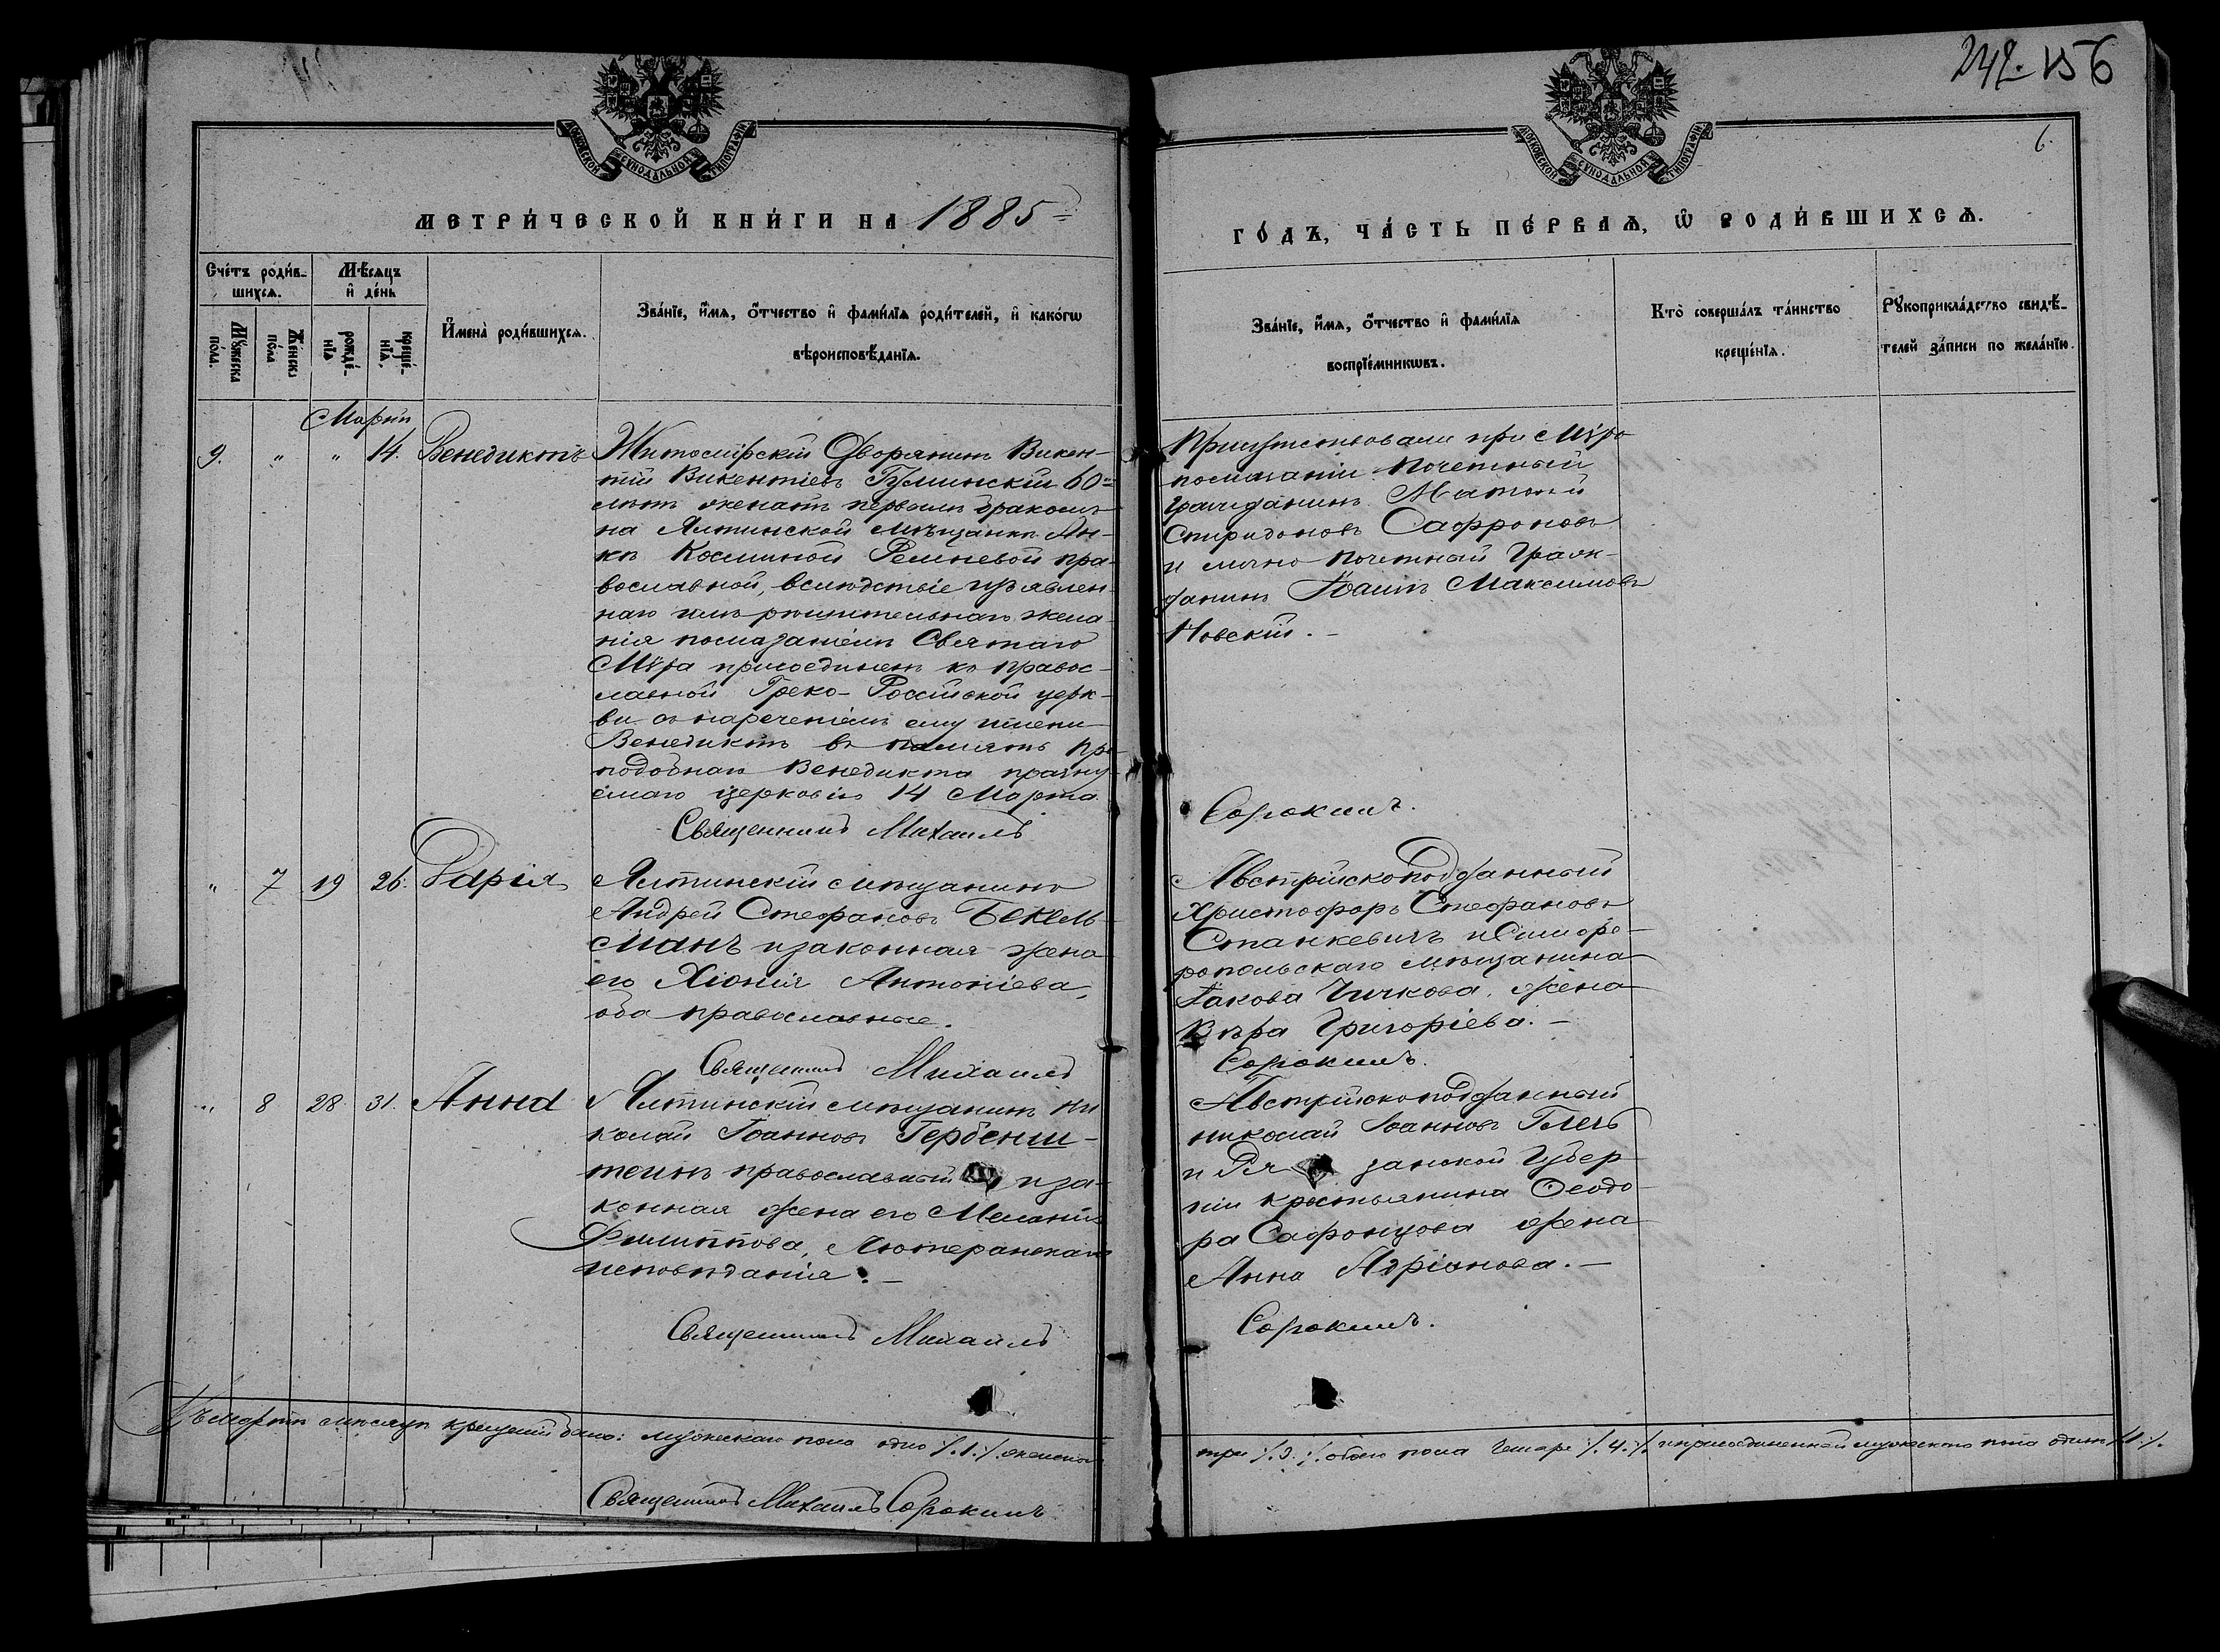 242. 156
6.
МОСКОВСКОЙ СУНОДАЛЬНОЙ ТИПОГРАФІИ
МОСКОВСКОЙ СУНОДАЛЬНОЙ ТИПОГРАФІИ
МЕТРИ́ЧЕСКОЙ КНИ́ГИ НА 1885
ГО́ДЪ, ЧА́СТЬ ПЕ́РВАѦ, Ѡ҆ РОДИ́ВШИХСѦ.
Сче́тъ роди́в-
шихсѧ.
Мꙋ́жеска
по́ла.
Же́нска
по́ла
Мѣ́сѧцъ
и҆ де́нь
рожде́-
нїѧ
креще́-
нїѧ.
И҆мена̀ роди́вшихсѧ.
Зва́нїе, и҆́мѧ, ѻ҆́тчество и҆ фами́лїѧ роди́телей, и҆ како́гѡ
вѣроисповѣ́данїѧ.
Зва́нїе, и҆́мѧ, ѻ҆́тчество и҆ фами́лїѧ
воспрїе́мникѡвъ.
Кто̀ соверша́лъ та́инство
креще́нїѧ.
Рꙋкоприкла́дство свидѣ́-
телей за́писи по жела́нїю.
Мартъ
9. " " 14. Венедиктъ
Житомірскій Дворянинъ Викен-
тій Викентіевъ Гулинскій 60
лѣтъ женатъ первымъ бракомъ
на Ялтинской мѣщанкѣ Ан-
нѣ Косминой Ремневой пра-
вославной, вслѣдствіе изъявлен-
наго имъ рѣшительнаго жела-
нія помазаніемъ Святаго
Мѵра присоединенъ къ правос-
лавной Греко-Россійской церк-
ви съ нареченіемъ ему имени
Венедиктъ въ память пре-
подобнаго Венедикта празну-
емаго церковію 14 Марта.
Священникъ Михаилъ
Присутствовали при Мѵро
помазаніи Почетный
гражданинъ Матѳей
Спиридоновъ Сафроновъ
и лично почетный Граж-
данинъ Іоаннъ Максимовъ
Новскій. -
Сорокинъ.
" 7 19 26. Дарія
Ялтинскій мѣщанинъ
Андрей Стефановъ Бекель-
манъ и законная жена
его Хіонія Антоніева,
оба православные.
Священникъ Михаилъ
Австрійскоподданный
Христофоръ Стефановъ
Станкевичъ и Симфе-
ропольскаго мѣщанина
Іакова Чичкова, жена
Вѣра Григоріева. -
Сорокинъ.
" 8 28 31. Анна
Ялтинскій мѣщанинъ Ни
колай Іоанновъ Гербенш-
теинъ православный и за-
конная жена его Меланія
Филиппова, Лютеранскаго
исповѣданія. -
Священникъ Михаилъ
Австрійскоподданный
Николай Іоанновъ Глечъ
и Ря занской Губер-
ніи крестьянина Ѳеодо-
ра Сафонцова жена
Анна Адріанова. -
Сорокинъ.
Въ Мартѣ мѣсяцѣ крещеній было: мужескаго пола одно /.1./. женскаго
три /.3./. обоего пола четыре /.4./. и присоединенный мужескаго пола одинъ /.1./.
Священникъ Михаилъ Сорокинъ